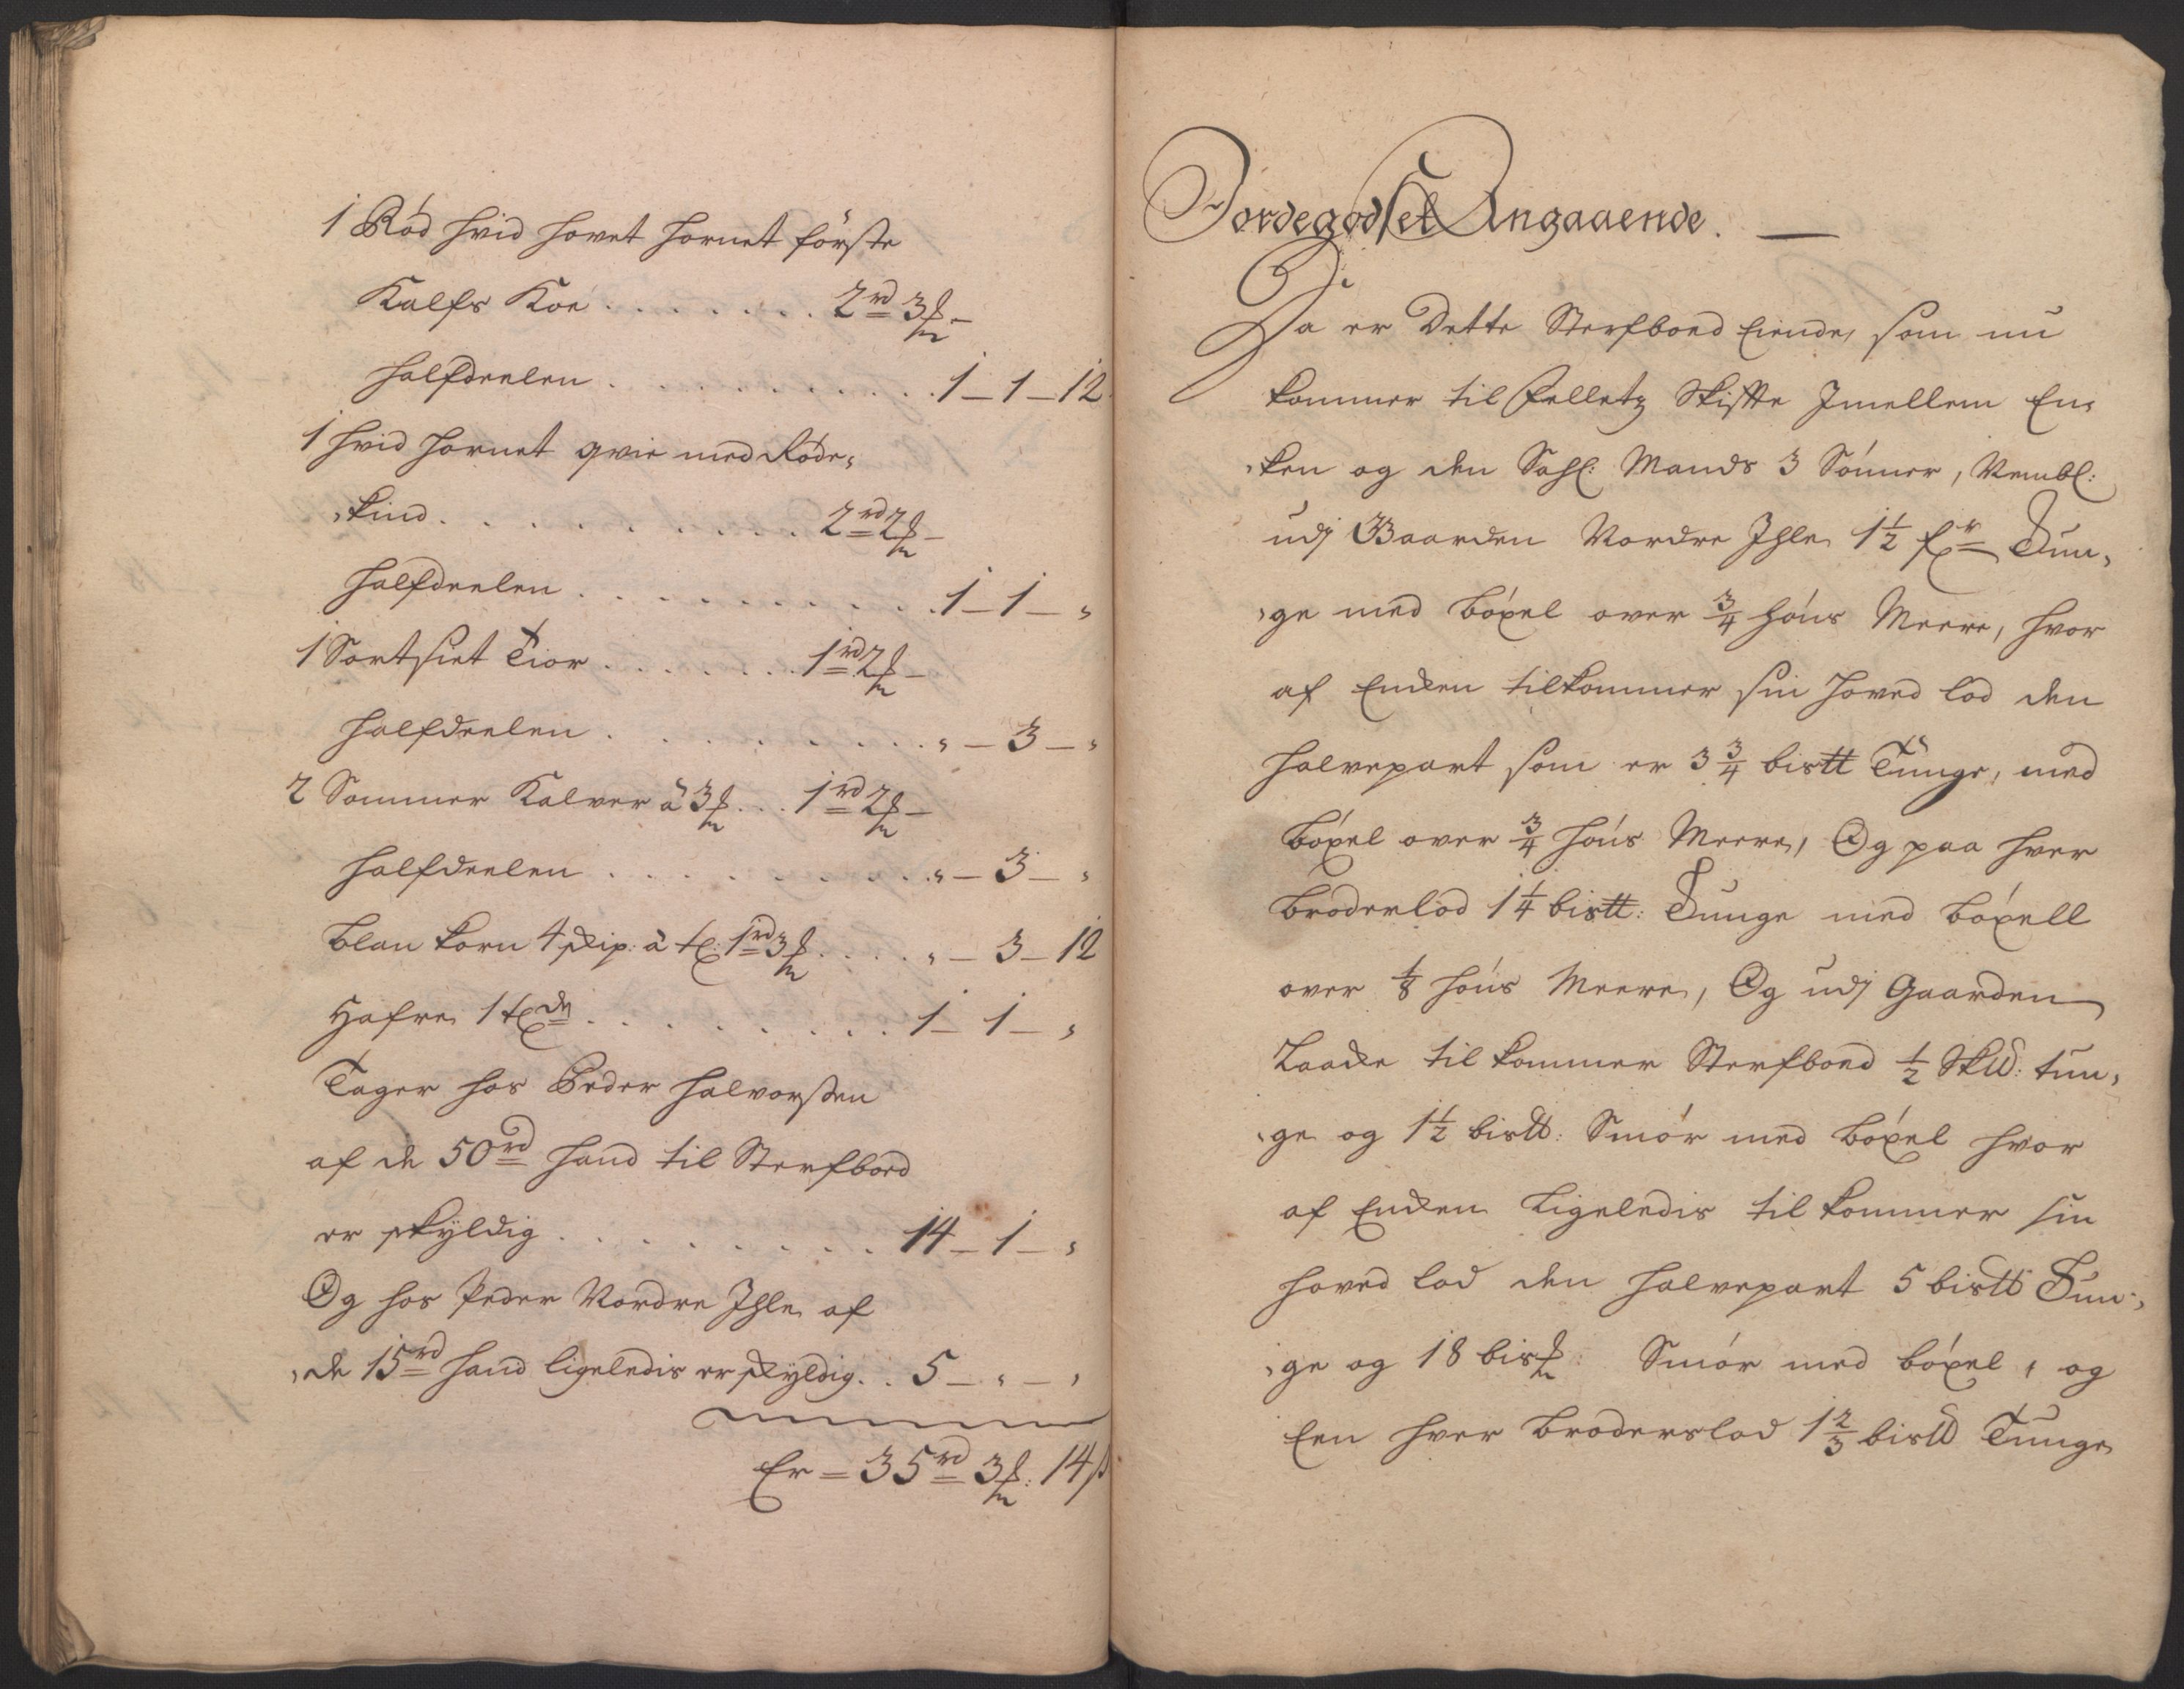 1 Rød hvid hovet hornet første
Kalfs Koe . . . . . . . 2 rd 3 ƒ –
halfdeelen . . . . . . . . . 1 – 1 – 12
1 hvid hornet qvie med Røde,
,kind . . . . . . . . . . 2 rd 2 ƒ –
halfdeelen . . . . . . . . . . 1 – 1 – „
1 Sortsiet Tior . . . . . . . 1 rd 2 ƒ –
halfdeelen . . . . . . . . . „ – 3 – „
2 Sommer Kalver â 3 ƒ . . . 1 rd 2 ƒ –
halfdeelen . . . . . . . . . „ – 3 – „
Blan korn 4 skip: â t: 1 rd 3 ƒ . . . . „ – 3 – 12
Hafre 1 tde . . . . . . . . . 1 – 1 – „
Tager hos Peder Halvorsen
af de 50 rd hand til Sterfboed
er skÿldig . . . . . . . . . 14 – 1 – „
Og hos Peder Nordre Ihle af
,de 15 rd hand ligeledis er skÿldig . . 5 – „ – „
Er = 35 rd 3 ƒ: 14 ß
Jordegodset Angaaende. —
Da er Dette Sterfboed Eiende, som nu
kommer til Felletz Skifte Imellem En,
,ken og den Sahl: Mands 3 Sønner, Nembl:
udj Gaarden Nordre Ihle 1½ fr Tun,
,ge med bøxel over ¾ Húús Meere, hvor
af Encken tilkommer sin Hoved lod den
halvepart som er 3¾ bistt Tunge, med
bøxel over ¾ húús Meere, Og paa hver
broderlod 1¼ bistt: Tunge med bøxell
over ⅛ húús Meere, Og udj Gaarden
Laacke til kommer Sterfboed ½ Skld: tun,
,ge og 1½ bistt: Smør med bøxel hvor
af Encken Ligeledis til kommer sin
hoved lod den halvepart 5 bistt Tun,
,ge og 18 bisƒ: Smør med bøxel, og
Een hver Broderslod 1⅔ bistt Tunge